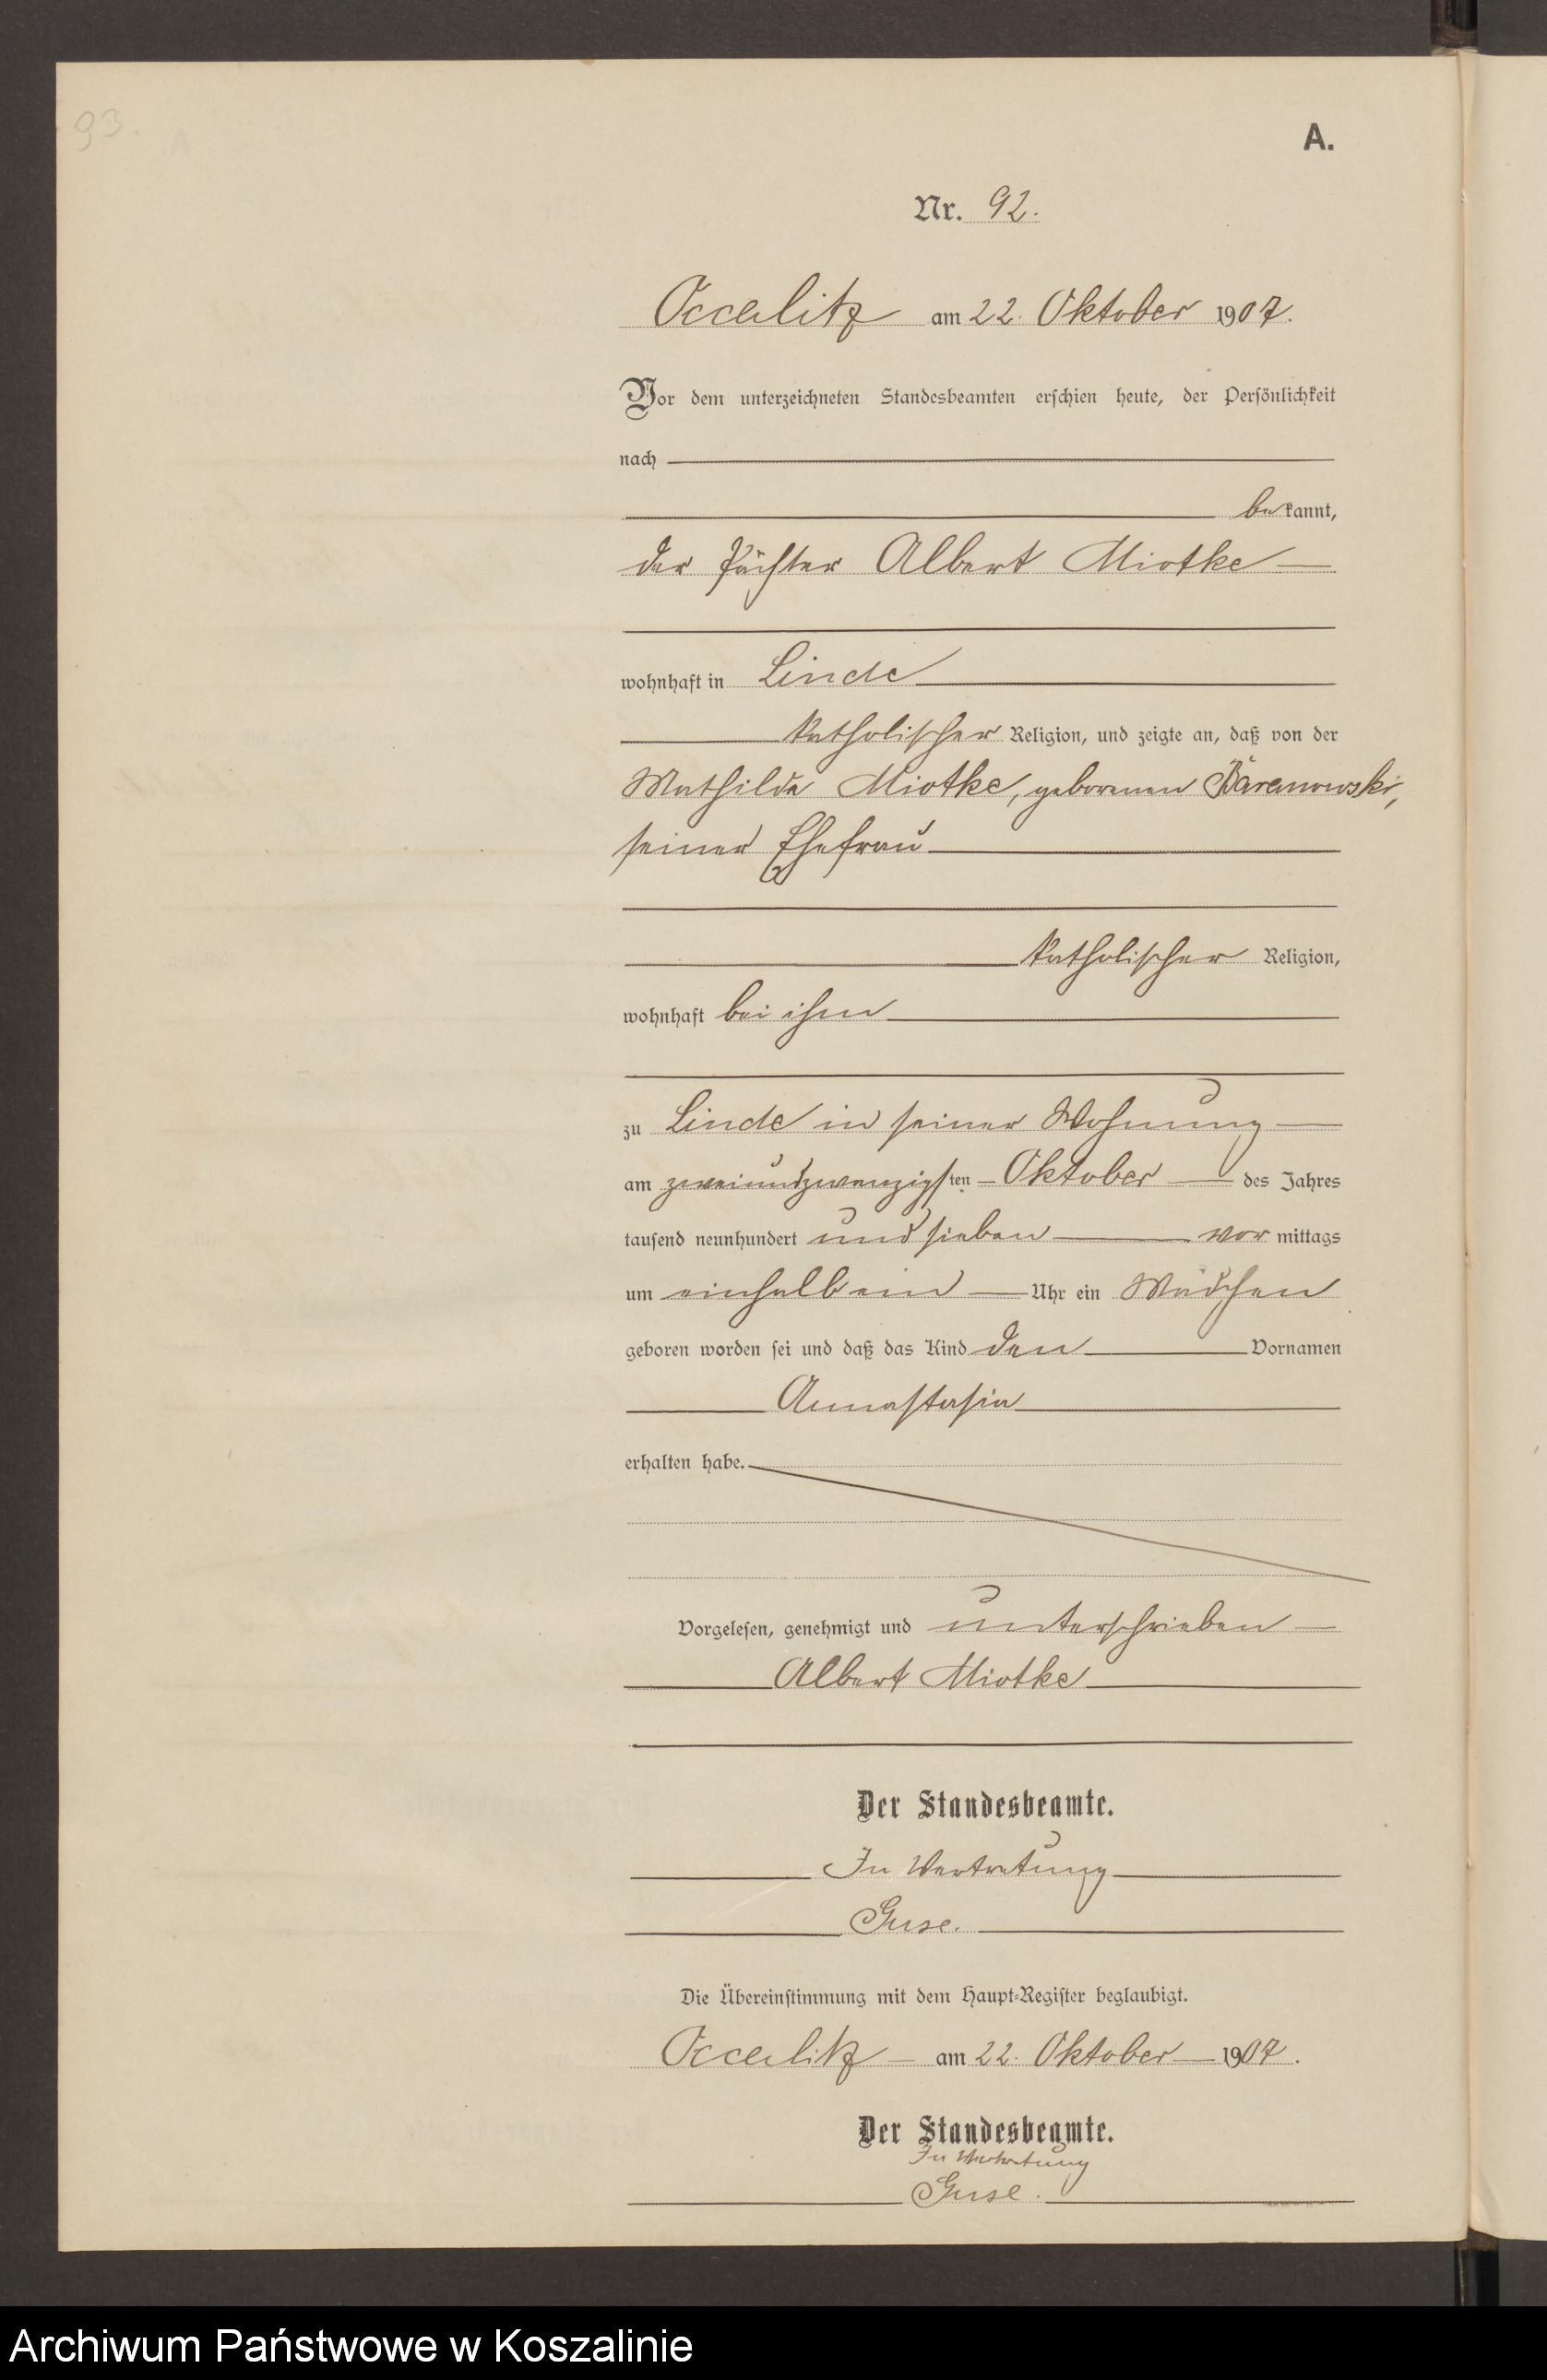 93.
A.
Nr. 92.
Occalitz am 22. Oktober 1907.
Vor dem unterzeichneten Standesbeamten erschien heute, der Persönlichkeit
nach
bekannt,
der Pächter Albert Miotke
wohnhaft in Linde
katholischer Religion, und zeigte an, daß von der
Mathilde Miotke, geborenen Baranowski,
seiner Ehefrau
katholischer Religion,
wohnhaft bei ihm
zu Linde in seiner Wohnung
am zweiundzwanzigsten Oktober des Jahres
tausend neunhundert und sieben vor mittags
um einhalb ein Uhr ein Mädchen
geboren worden sei und daß das Kind den Vornamen
Annastasia
erhalten habe.
Vorgelesen, genehmigt und unterschrieben
Albert Miotke
Der Standesbeamte.
In Vertretung
Guse.
Die Übereinstimmung mit dem Haupt-Register beglaubigt.
Occalitz am 22. Oktober 1907.
Der Standesbeamte.
In Vertretung
Guse.
Archiwum Państwowe w Koszalinie